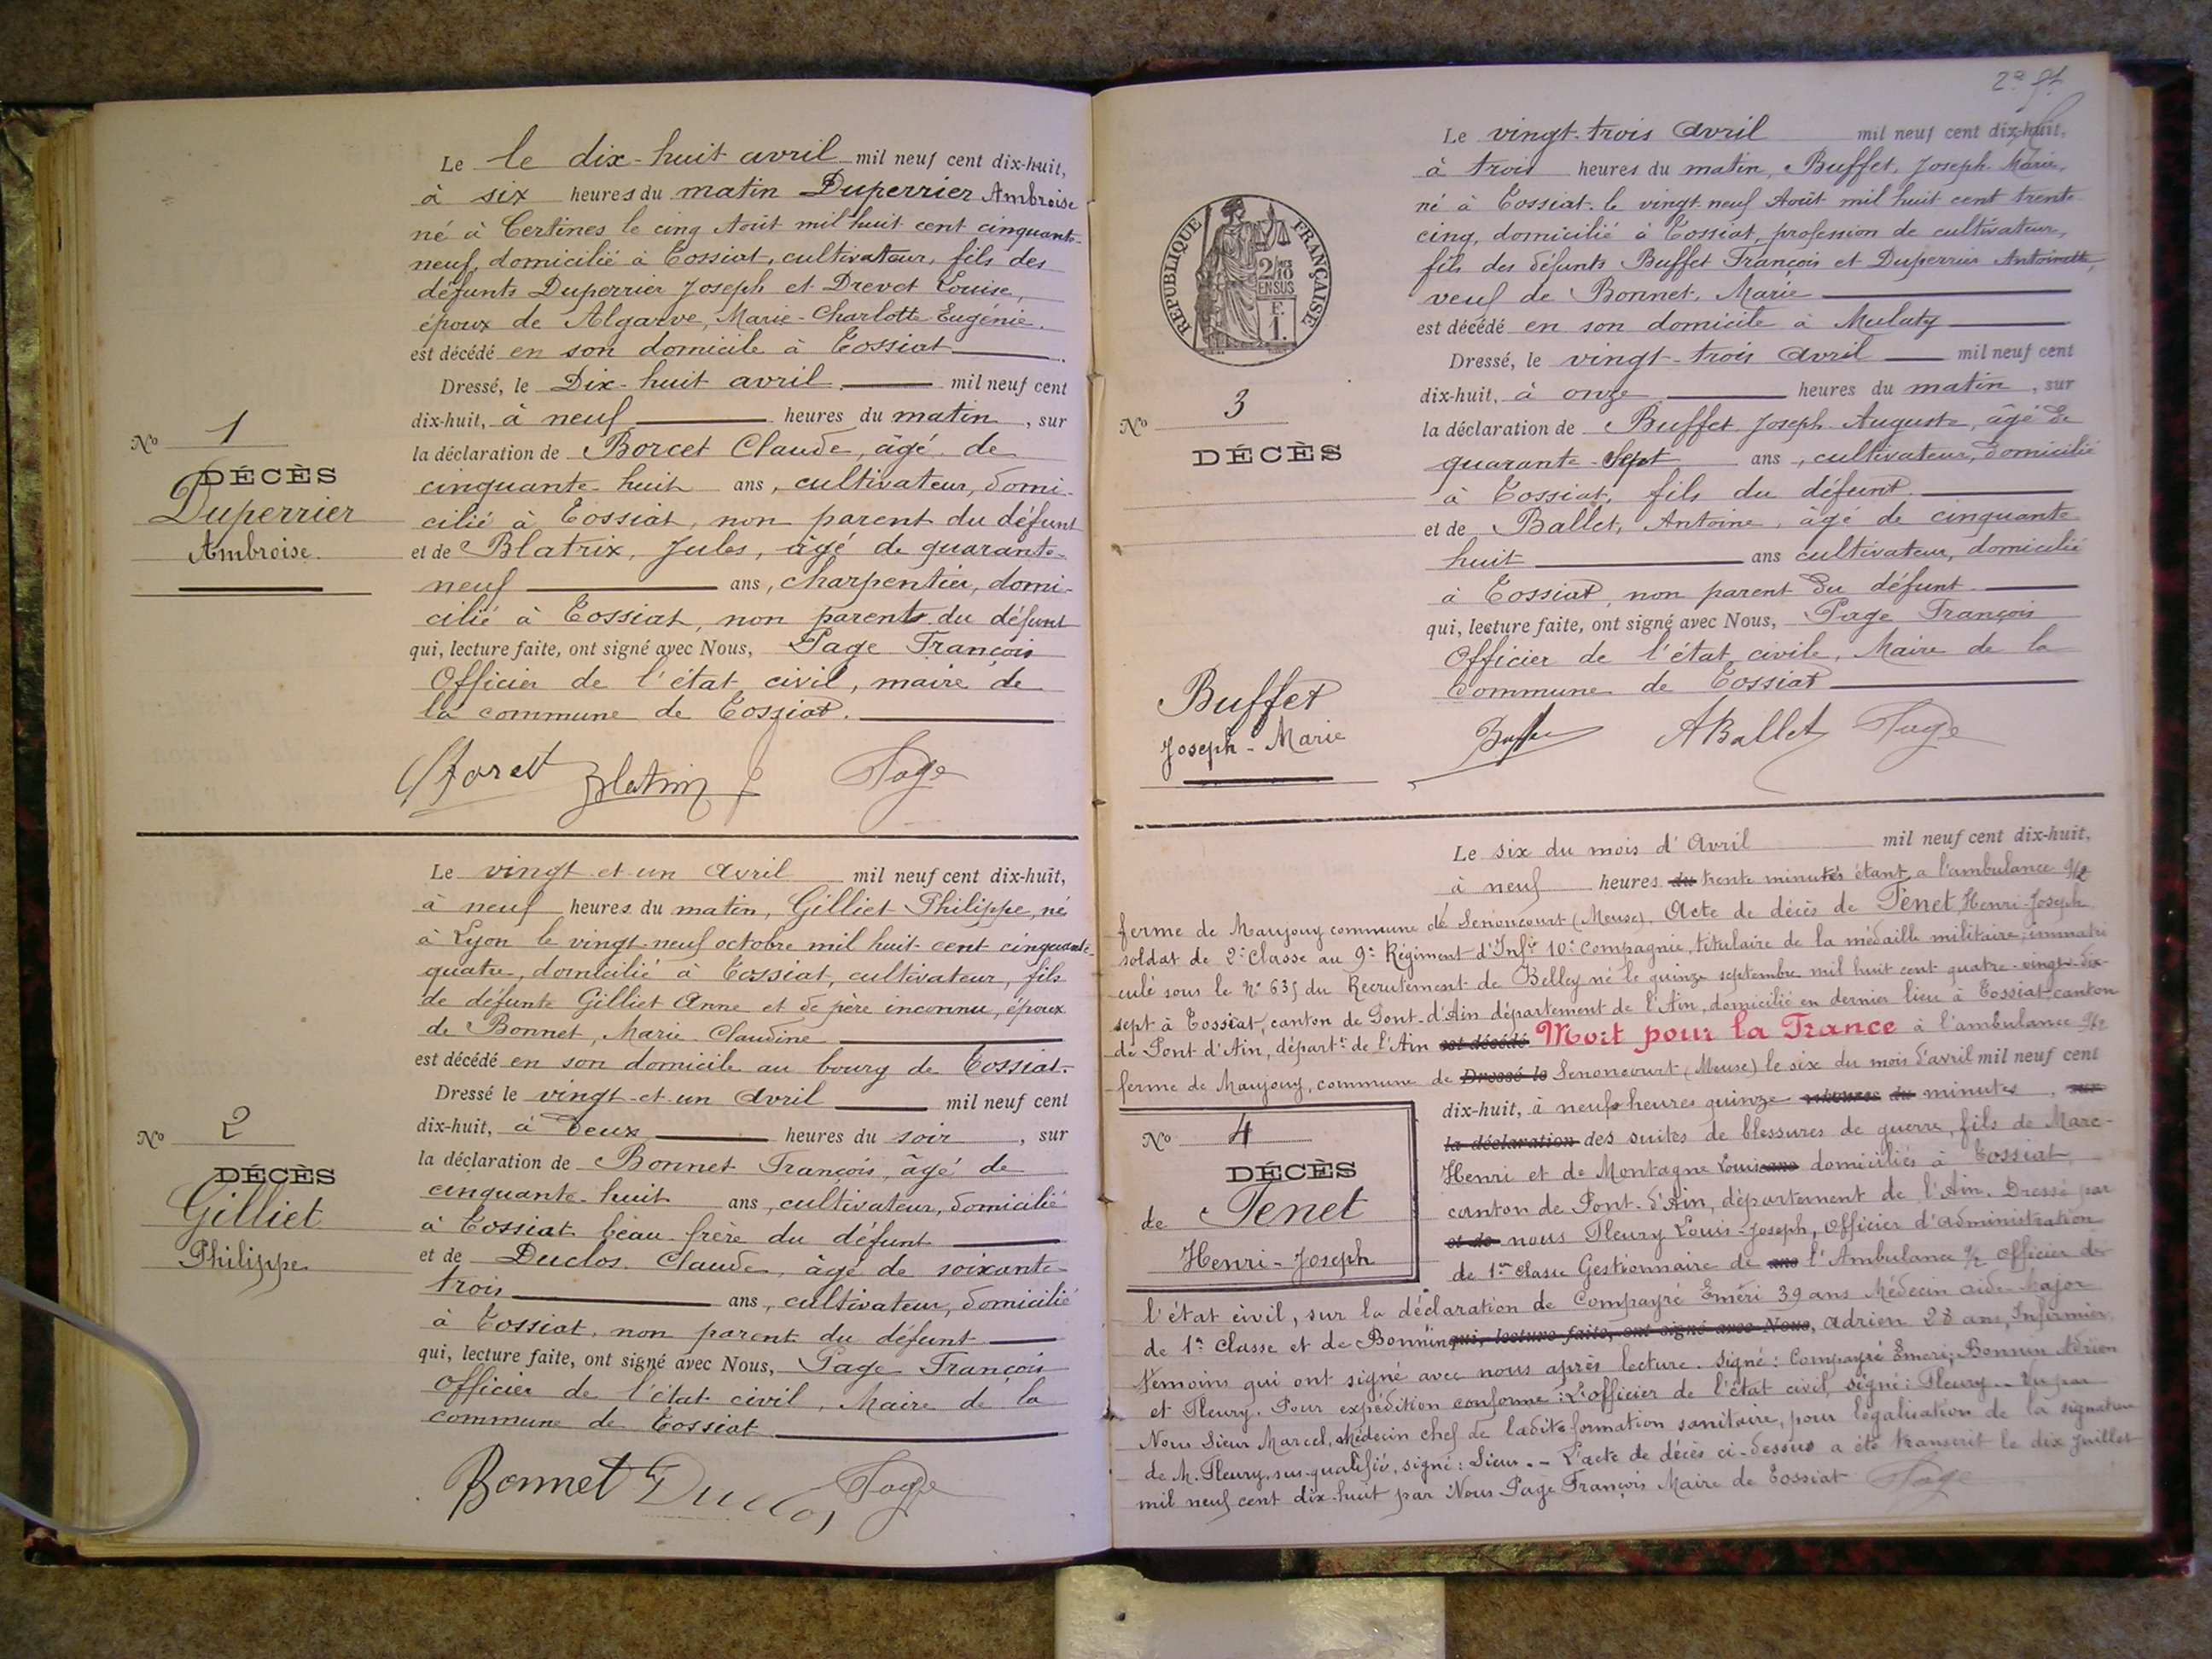 Le le dix-huit avril mil neuf cent dix-huit,
à six heures du matin Duperrier Ambroise
né à Certines le cinq Août mil huit cent cinquante-
neuf, domicilié à Tossiat, cultivateur, fils des
défunts Duperrier Joseph et Drevet Louise,
époux de Algarve, Marie-Charlotte Eugénie.
est décédé en son domicile à Tossiat
Dressé, le Dix-huit avril mil neuf cent
dix-huit, à neuf heures du matin, sur
la déclaration de Borcet Claude, âgé de
cinquante-huit ans, cultivateur, domi-
cilié à Tossiat, non parent du défunt
et de Blatrix, Jules, âgé de quarante-
neuf ans, charpentier, domi-
cilié à Tossiat, non parent du défunt
qui, lecture faite, ont signé avec Nous, Page François
Officier de l'état civil, maire de
la commune de Tossiat.
Page
No 1
DÉCÈS
Duperrier
Ambroise.
Le vingt et un avril mil neuf cent dix-huit,
à neuf heures du matin, Gilliet Philippe, né
à Lyon le vingt-neuf octobre mil huit cent cinquante-
quatre, domicilié à Tossiat, cultivateur, fils
de défunte Gilliet Anne et de père inconnu, époux
de Bonnet, Marie Claudine
est décédé en son domicile au bourg de Tossiat.
Dressé le vingt-et-un Avril mil neuf cent
dix-huit, à Deux heures du soir, sur
la déclaration de Bonnet François, âgé de
cinquante-huit ans, cultivateur, domicilié
à Tossiat beau-frère du défunt
et de Duclos Claude, âgé de soixante-
trois ans, cultivateur, domicilié
à Tossiat, non parent du défunt
qui, lecture faite, ont signé avec Nous, Page François
Officier de l'état civil, Maire de la
commune de Tossiat
Bonnet Duclos Page
No 2
DÉCÈS
Gilliet
Philippe.
Le vingt-trois Avril mil neuf cent dix-huit,
à trois heures du matin, Buffet, Joseph-Marie,
né à Tossiat le vingt-neuf Août mil huit cent trente-
cinq, domicilié à Tossiat, profession de cultivateur,
fils des défunts Buffet François et Duperrier Antoinette,
veuf de Bonnet, Marie
est décédé en son domicile à Mulaty
Dressé, le vingt-trois Avril mil neuf cent
dix-huit, à onze heures du matin, sur
la déclaration de Buffet Joseph Auguste, âgé de
quarante-sept ans, cultivateur, domicilié
à Tossiat, fils du défunt
et de Ballet, Antoine, âgé de cinquante
huit ans cultivateur, domicilié
à Tossiat, non parent du défunt
qui, lecture faite, ont signé avec Nous, Page François
Officier de l'état civile, Maire de la
Commune de Tossiat
Buffet ABallet Page
RÉPUBLIQUE FRANÇAISE
2/10 EN SUS
F. 1.
No 3
DÉCÈS
Buffet
Joseph-Marie
Le six du mois d'Avril mil neuf cent dix-huit,
à neuf heures du trente minutes étant a l'ambulance 9/2
ferme de Maujouy commune de Senoncourt (Meuse). Acte de décès de Tenet, Henri-Joseph
soldat de 2e Classe au 9e Régiment d'Infie 10e Compagnie, titulaire de la médaille militaire; immatri
culé sous le No 635 du Recrutement de Belley né le quinze septembre mil huit cent quatre-vingt-dix-
sept à Tossiat, canton de Pont-d'Ain département de l'Ain, domicilié en dernier lieu à Tossiat-canton
de Pont d'Ain, départt de l'Ain est décédé Mort pour la France à l'ambulance 9/2
ferme de Maujouy, commune de Dressé le Senoncourt (Meuse) le six du mois d'avril mil neuf cent
dix-huit, à neuf heures quinze heures du minutes, sur
la déclaration des suites de blessures de guerre, fils de Marc-
Henri et de Montagne Louise ans domiciliés à Tossiat
canton de Pont-d'Ain, département de l'Ain. Dressé par
et de nous Fleury Louis-Joseph, Officier d'administration
de 1re Classe Gestionnaire de ans l'Ambulance 9/2 Officier de
l'état civil, sur la déclaration de Compayré Eméri 39 ans Médecin aide-Major
de 1re Classe et de Bonnin qui, lecture faite, ont signé avec Nous, Adrien 28 ans, Infirmier
témoins qui ont signé avec nous après lecture. Signé: Compayré Emeri; Bonnin Adrien
et Fleury. Pour expédition conforme: L'officier de l'état civil, signé: Fleury.. Vu par
Nous Sieur Marcel, Médecin chef de ladite formation sanitaire, pour légalisation de la signature
de M. Fleury, sus-qualifié, signé: Sieur. - L'acte de décès ci-dessus a été transcrit le dix juillet
mil neuf cent dix-huit par Nous Page François Maire de Tossiat Page
No 4
DÉCÈS
de Tenet
Henri-Joseph